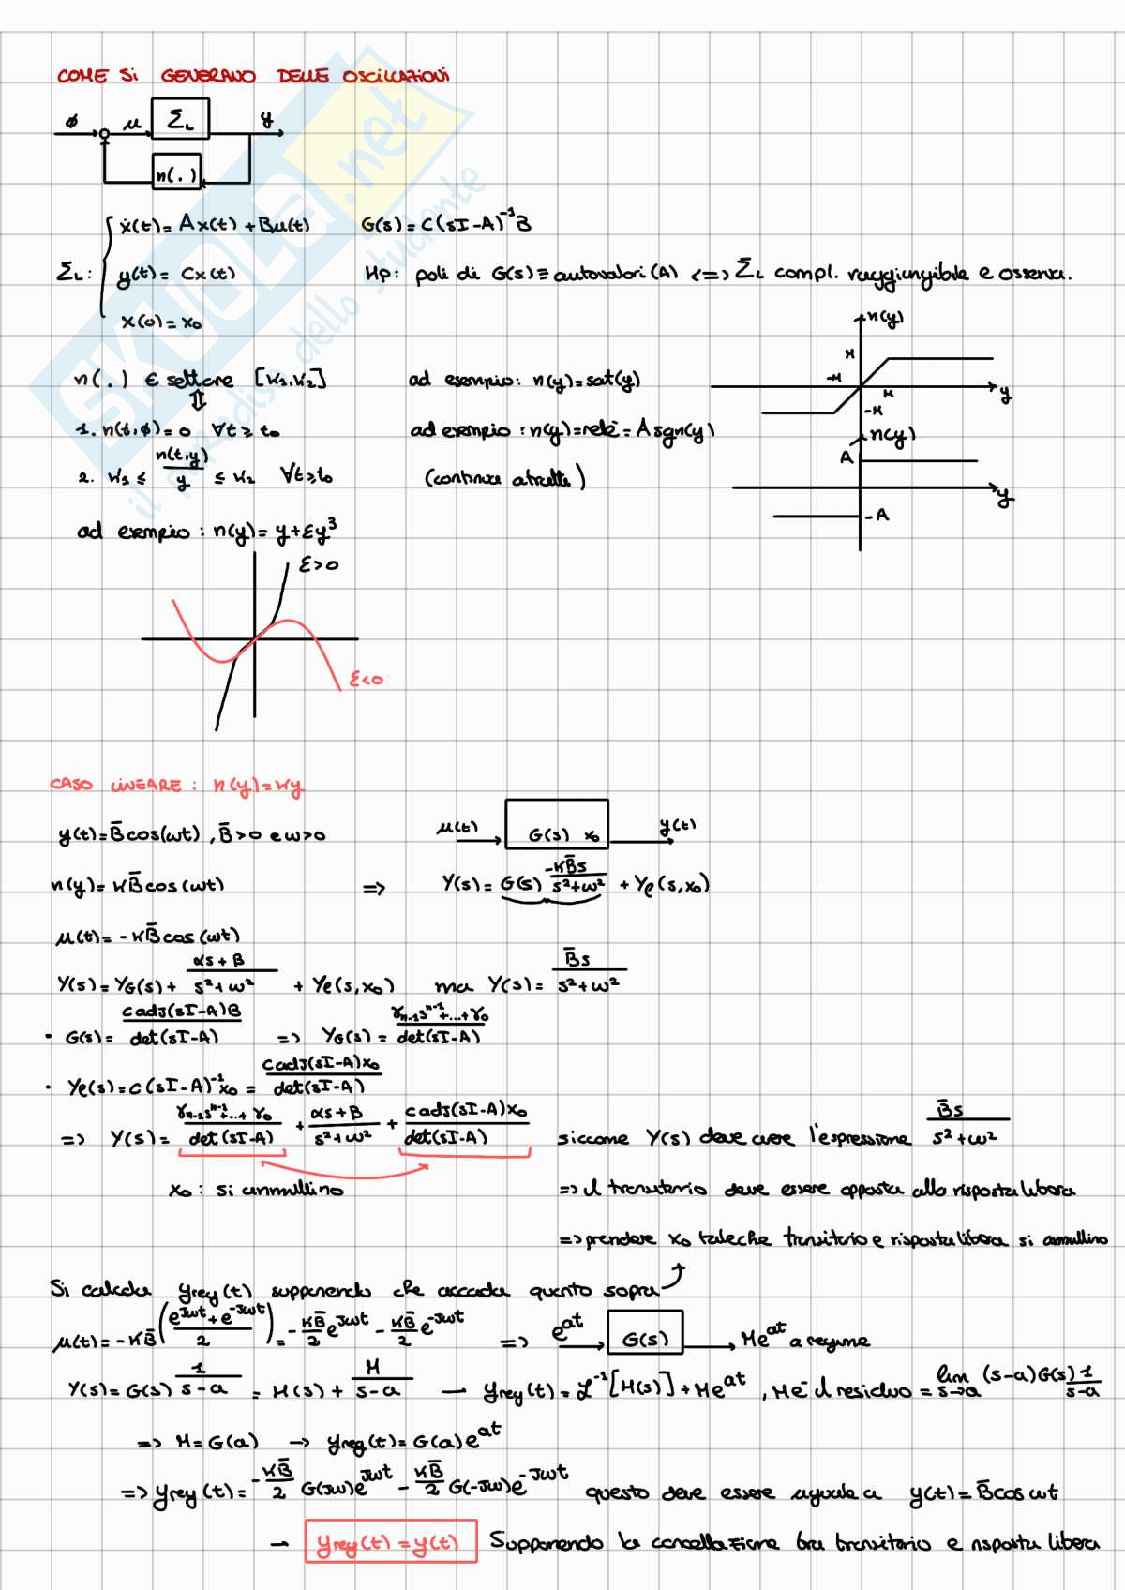 COME SI GENERANO DELLE OSCILLAZIONI
ϕ u Σ_L y
n(.)
ẋ(t) = Ax(t) + Bu(t) G(s) = C(sI-A)^-1 B
Σ_L: y(t) = Cx(t) Hp: poli di G(s) ≡ autovalori(A) <=> Σ_L compl. raggiungibile e osserva.
x(0) = x₀
n(y)
n(.) ∈ settore [K₁,K₂] ad esempio: n(y) = sat(y) M -M M -M y
⇕
1. n(t,ϕ) = 0 ∀t ≥ t₀ ad esempio: n(y) = relè = A sgn(y) n(y)
2. K₁ ≤ n(t,y)/y ≤ K₂ ∀t ≥ t₀ (continua a tratti) A y -A
ad esempio: n(y) = y + εy³
ε>0
ε<0
CASO LINEARE: n(y) = Ky
y(t) = B̄cos(ωt), B̄>0 e ω>0 u(t) G(s) x₀ y(t)
n(y) = KB̄cos(ωt) => Y(s) = G(s) -KB̄s/(s²+ω²) + Ye(s,x₀)
u(t) = -KB̄cos(ωt)
Y(s) = Y_G(s) + (αs+β)/(s²+ω²) + Ye(s,x₀) ma Y(s) = B̄s/(s²+ω²)
• G(s) = C adj(sI-A)B / det(sI-A) => Y_G(s) = (γ_{n-1}s^{n-1}+...+γ₀) / det(sI-A)
• Ye(s) = C(sI-A)^-1 x₀ = C adj(sI-A)x₀ / det(sI-A)
=> Y(s) = (γ_{n-1}s^{n-1}+...+γ₀)/det(sI-A) + (αs+β)/(s²+ω²) + C adj(sI-A)x₀/det(sI-A) siccome Y(s) deve avere l'espressione B̄s/(s²+ω²)
x₀: si annullino => il transitorio deve essere opposta alla risposta libera
=> prendere x₀ tale che transitorio e risposta libera si annullino
Si calcola y_reg(t) supponendo che accada quanto sopra
u(t) = -KB̄((e^{jωt}+e^{-jωt})/2) = -KB̄/2 e^{jωt} - KB̄/2 e^{-jωt} => e^{at} G(s) Me^{at} a regime
Y(s) = G(s) 1/(s-a) = H(s) + M/(s-a) → y_reg(t) = L^-1[H(s)] + Me^{at}, M è il residuo = lim s→a (s-a)G(s) 1/(s-a)
=> M = G(a) → y_reg(t) = G(a)e^{at}
=> y_reg(t) = -KB̄/2 G(jω)e^{jωt} - KB̄/2 G(-jω)e^{-jωt} questo deve essere uguale a y(t) = B̄cosωt
→ y_reg(t) = y(t) Supponendo la cancellazione tra transitorio e risposta libera
SKUOLA.net
dello studente